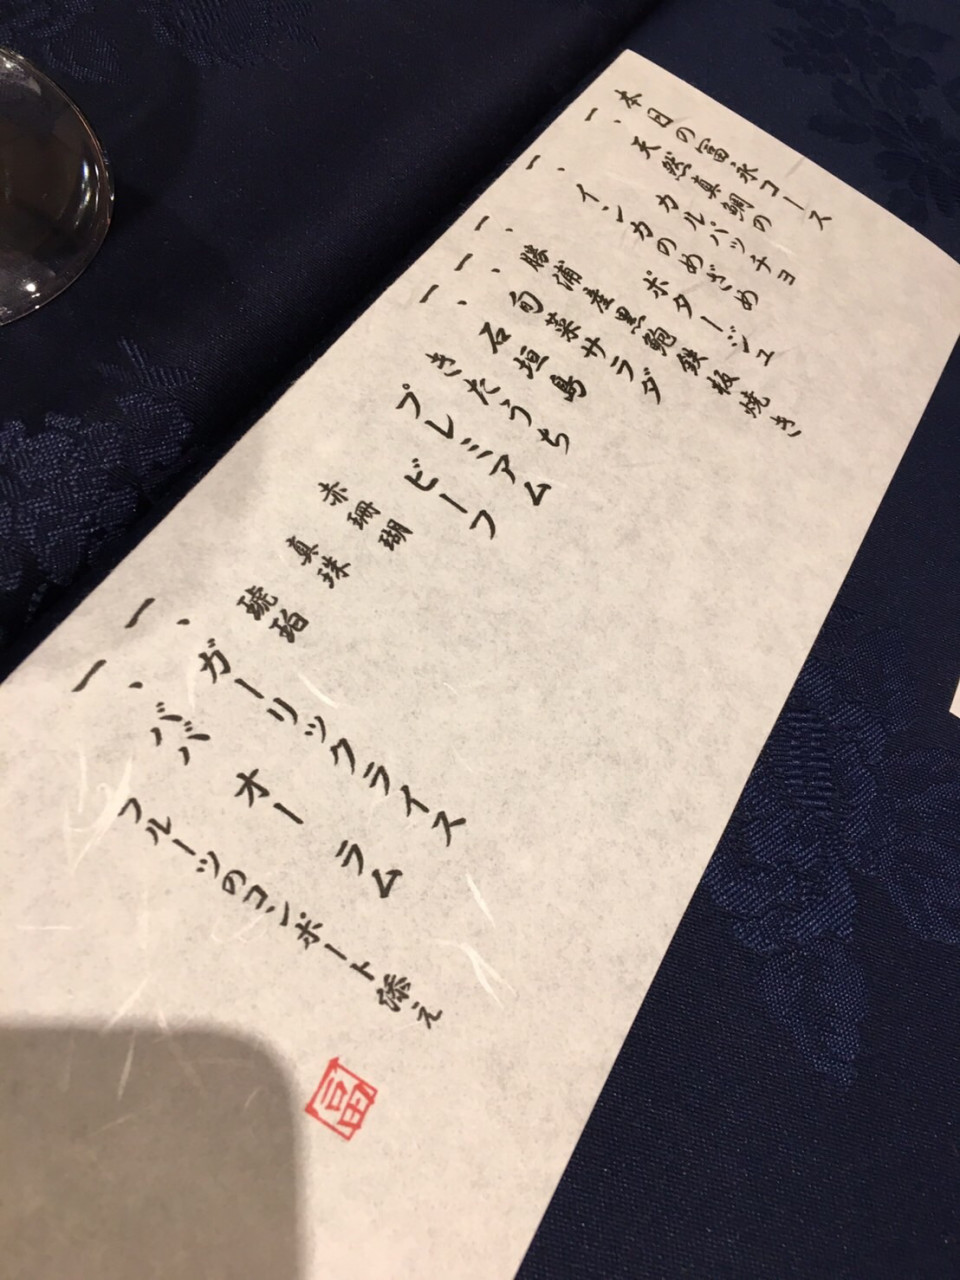 本日の冨永コース
一、天然真鯛の
カルパッチョ
一、インカのめざめ
ポタージュ
一、勝浦産黒鮑鉄板焼き
一、旬菜サラダ
一、石垣島
きたうち
プレミアム
ビーフ
赤珊瑚
真珠
琥珀
一、ガーリックライス
一、ババ オー ラム
フルーツのコンポート添え
冨